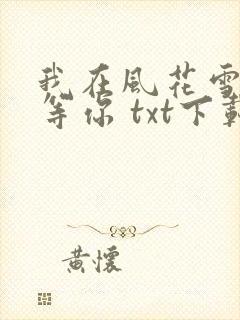 我在風花雪
等你 txt下載
黃懷